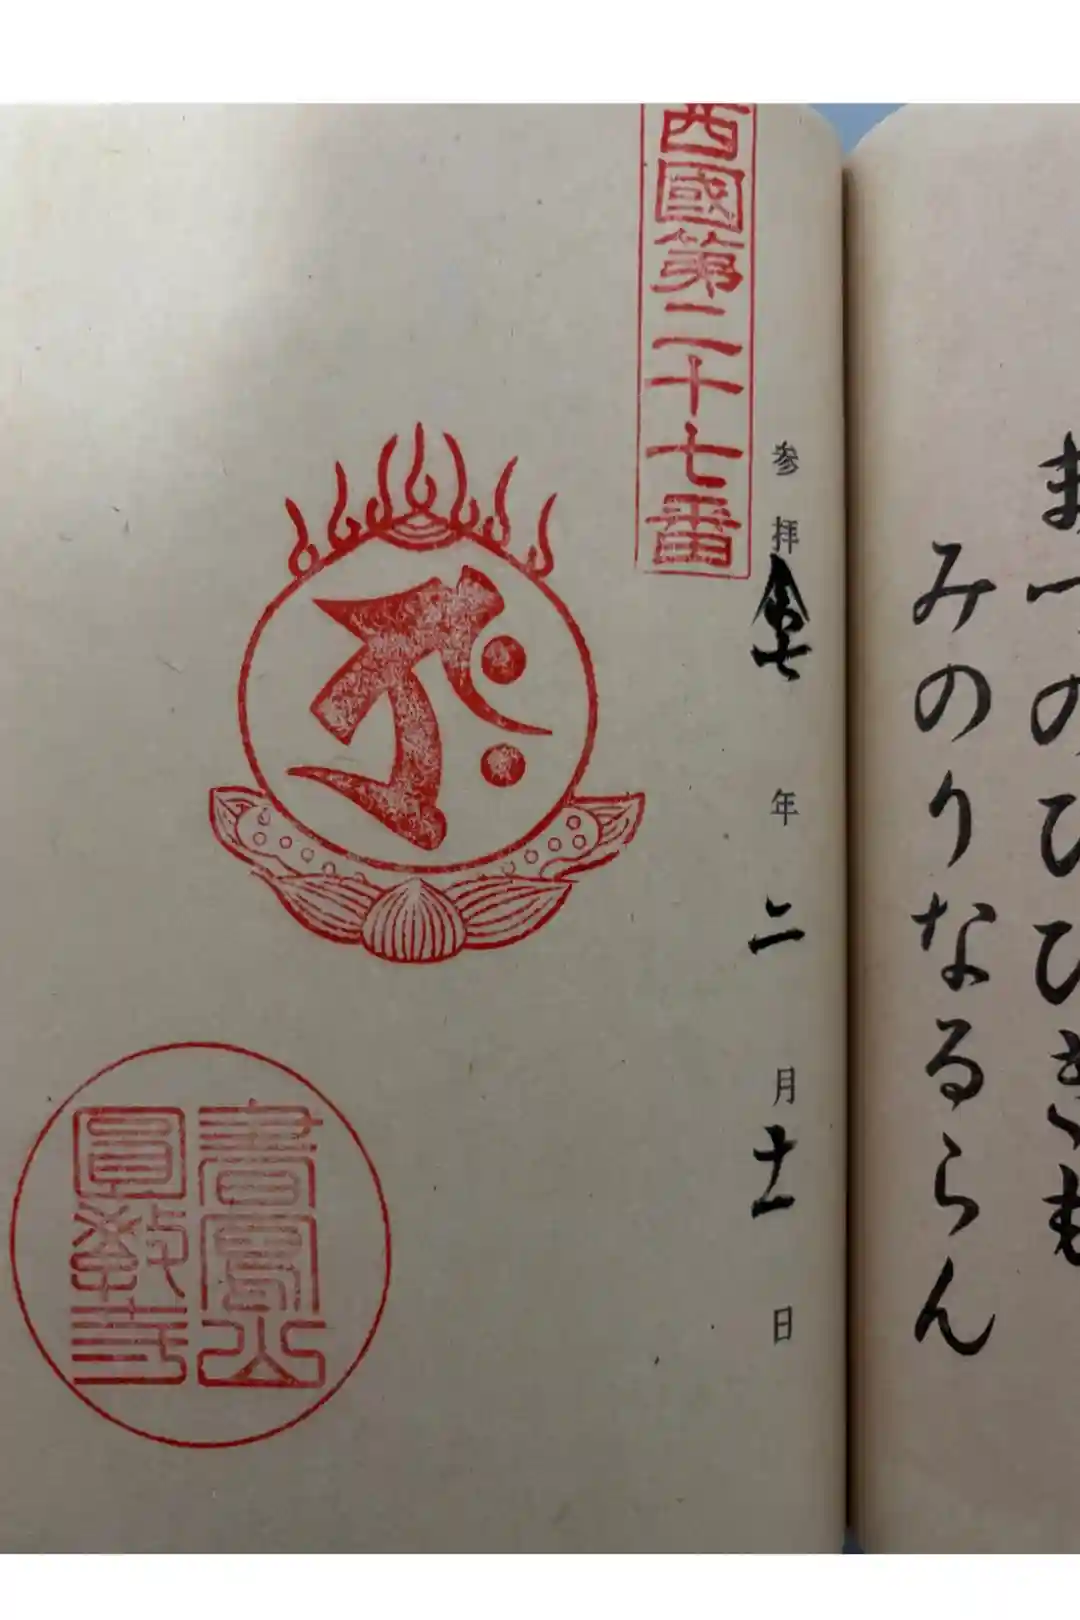 まつのひひきも
みのりなるらん
参拝 七年二月十一日
西國第二十七番
書寫山
圓教寺